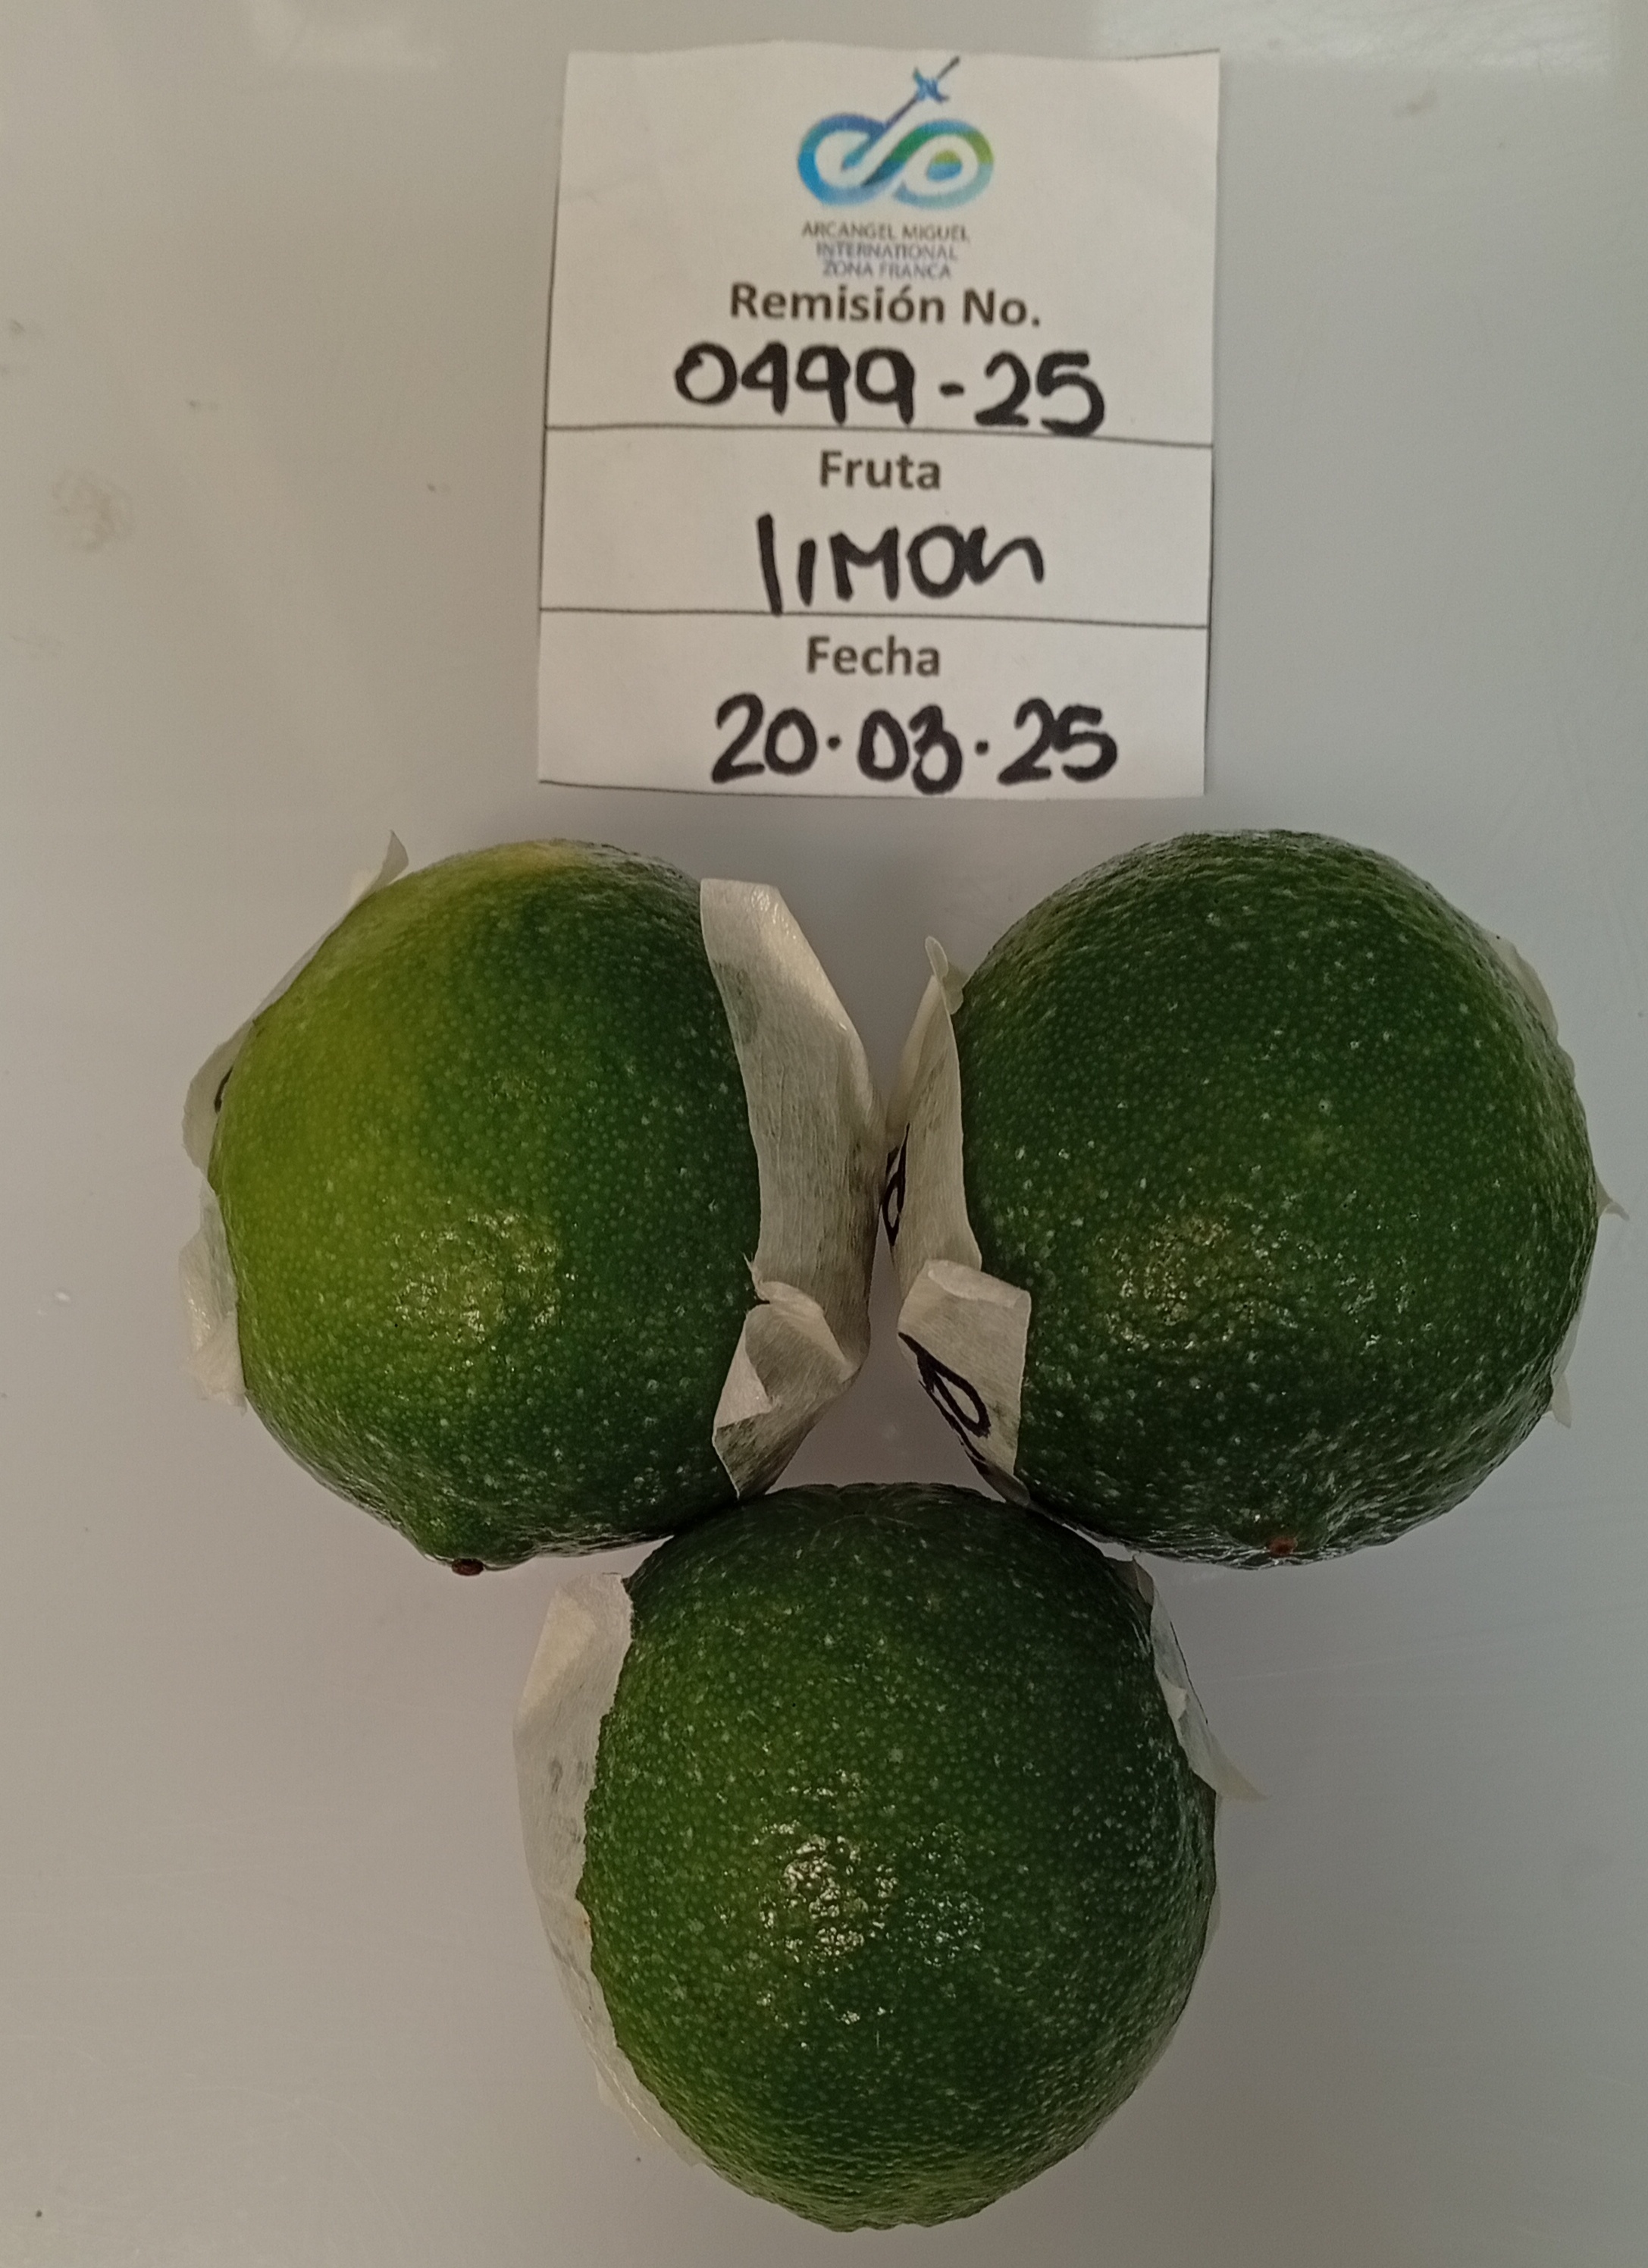 ARCANGEL MIGUEL
INTERNATIONAL
ZONA FRANCA
Remisión No.
0499-25
Fruta
limon
Fecha
20.03.25